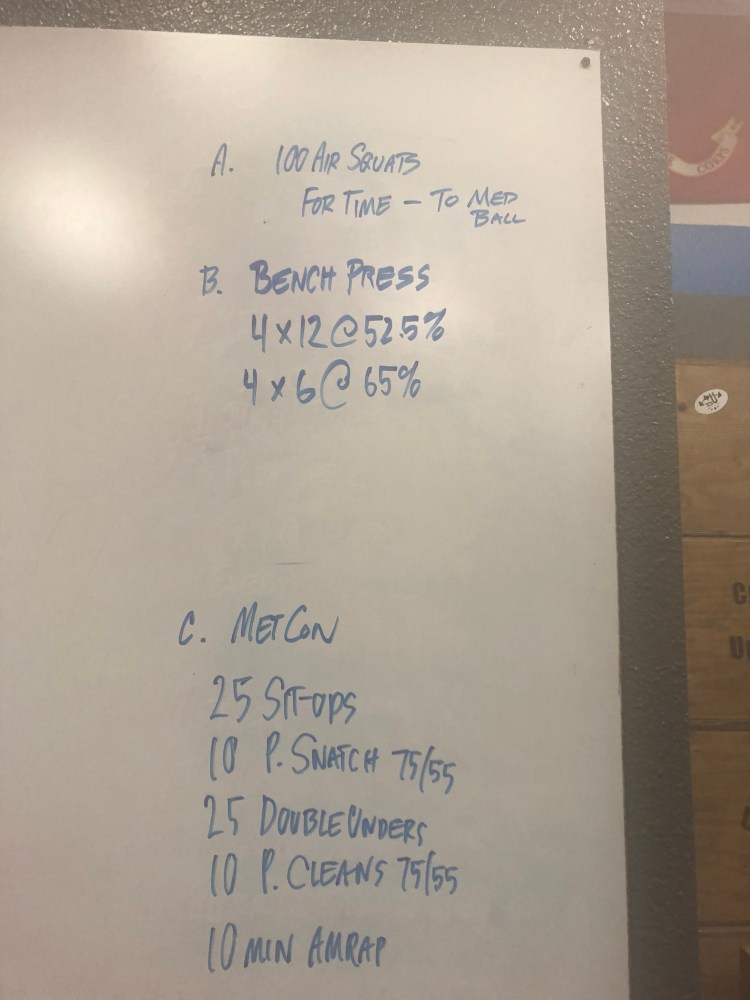 A. 100 AIR SQUATS
FOR TIME - TO MED
BALL
B. BENCH PRESS
4 x 12 @ 52.5%
4 x 6 @ 65%
C. METCON
25 SIT-UPS
10 P. SNATCH 75/55
25 DOUBLE UNDERS
10 P. CLEANS 75/55
10 MIN AMRAP
CORPS